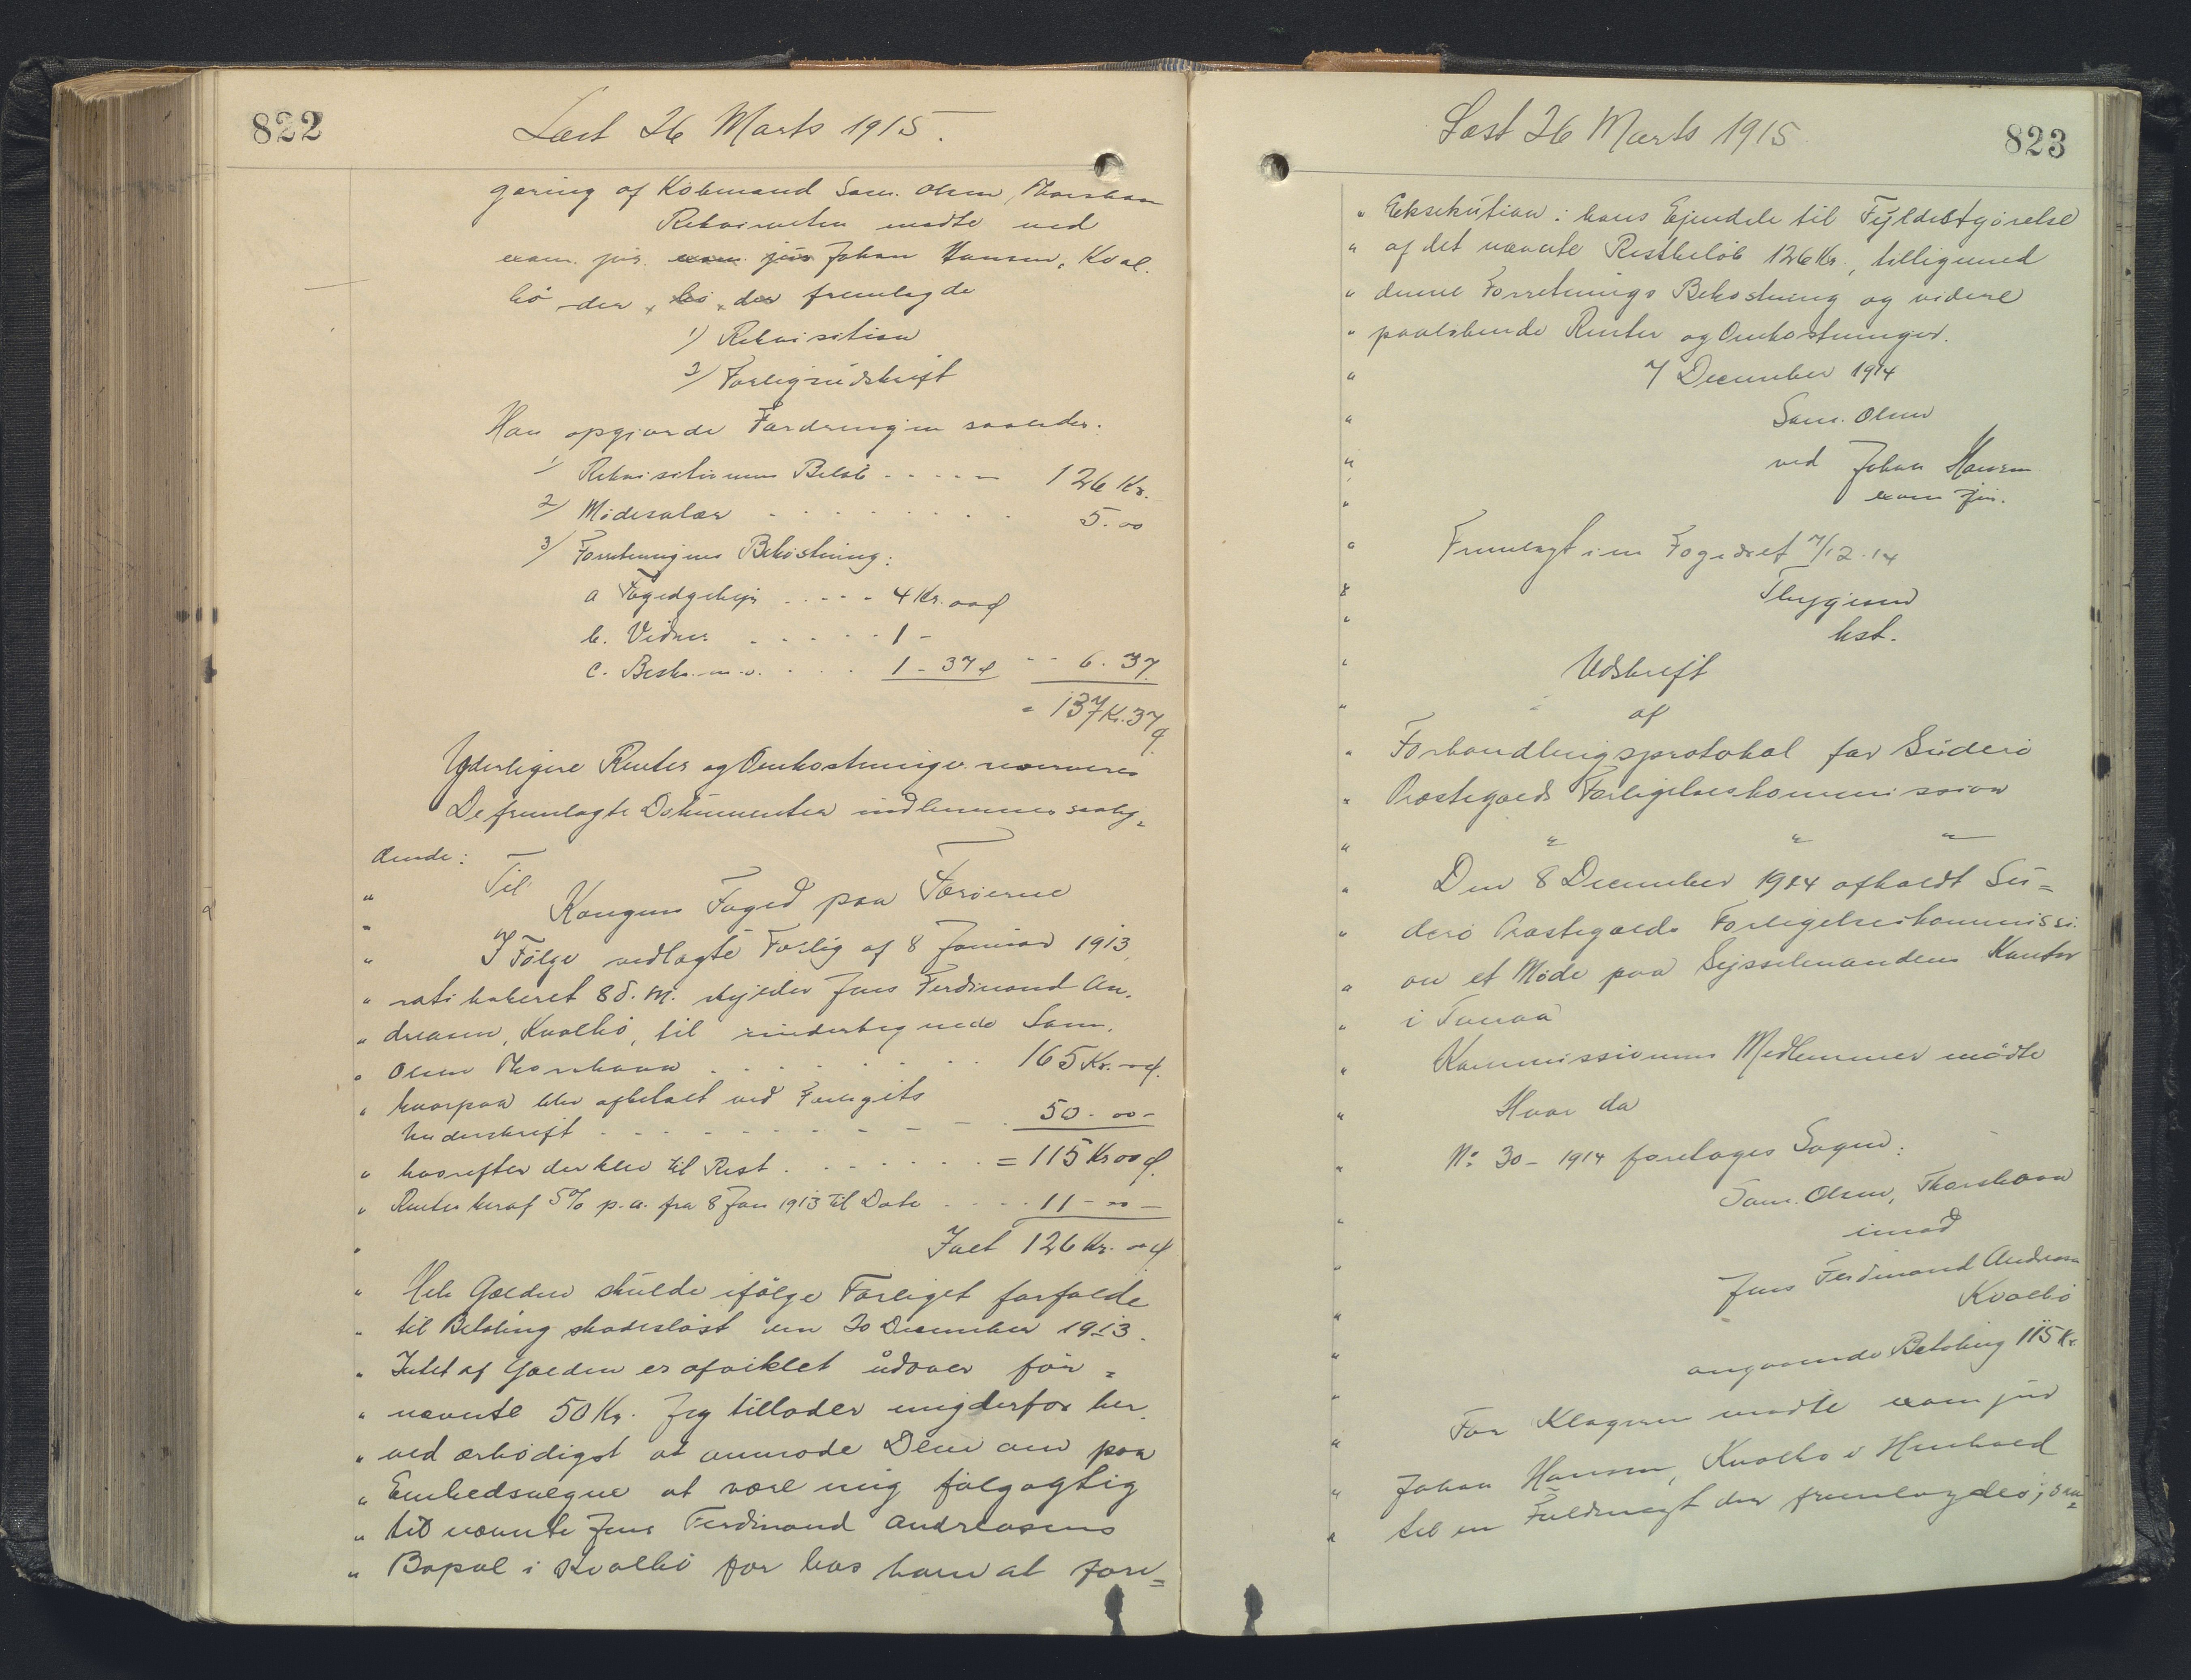 822
Læst 26 Marts 1915.
gæring af Købmand Sam. Olsen, Thorshavn
Rekvirenten mødte ved
exam. jur. exam. jur Johan Hansen, Kval.
bø der, bø, der fremlagde
1) Rekvisition
2) Forligsudskrift
Han opgjorde Fordringen saaledes:
1/ Rekvisitionens Beløb - - - - - 126 Kr.
2/ Mødesalær - - - - - - 5.00
3/ Forretningens Bekostning:
a Fogedgebyr - - - - 4 Kr. 00 Ø
b. Vidner - - - - - 1 -
c. Beskr. m.v. - - - 1 - 37 Ø - - 6. 37
= 137 Kr. 37 Ø.
Yderligere Renter og Omkostninger reserveres
De fremlagte Dokumenter indlemmes saaly=
dende:
" Til
" Kongens Foged paa Færøerne
" I Følge vedlagte Forlig af 8 Januar 1913,
" ratihaberet 8 d. M. skylder Jens Ferdinand An.
" dreasen, Kvalbø, til undertegnede Sam.
" Olsen Thorshavn - - - - - 165 Kr. 00 Ø.
" hvorpaa blev afbetalt ved Forligets
Underskrift - - - - - - - 50 - 00 -
" hvorefter der blev til Rest - - - - - = 115 Kr 00 Ø.
" Renter heraf 5% p. a. fra 8 Jan 1913 til Dato - - - 11 - 00 -
" Ialt 126 Kr. 00 Ø
" Hele Gælden skulde ifølge Forliget forfalde
" til Betaling skadesløst den 20 December 1913.
" Intet af Gælden er afviklet udover før=
" nævnte 50 Kr. Jeg tillader mig derfor her.
" ved ærbødigst at anmode Dem om paa
" Embedsvegne at være mig følgagtig
" til nævnte Jens Ferdinand Andreasens
" Bopæl i Kvalbø for hos ham at fore=
823
Læst 26 Marts 1915
" Eksekution i hans Ejendele til Fyldestgjørelse
" af det nævnte Restbeløb 126 Kr., tilligemed
" denne Forretnings Bekostning og videre
" paaløbende Renter og Omkostninger.
" 7 December 1914
" Sam. Olsen
" ved Johan Hansen
" exam jur.
" Fremlagt i en Fogedret 7/12.14
" Thygesen
" kst.
" Udskrift
" af
" Forhandlingsprotokol for Suderø
" Præstegælds Forligelseskommission
" " " "
" Den 8 December 1914 afholdt Su=
" derø Præstegælds Forligelseskommissi.
" on et Møde paa Sysselmandens Kontor
" i Tveraa
" Kommissionens Medlemmer mødte
" Hvor da
" No 30 - 1914 foretoges Sagen:
Sam. Olsen, Thorshavn
" imod
" Jens Ferdinand Andreasen
Kvalbø
" angaaende Betaling 115 Kr.
" For Klageren mødte exam jur
" Johan Hansen, Kvalbø i Henhold
" til en Fuldmagt der fremlagdes; saa=